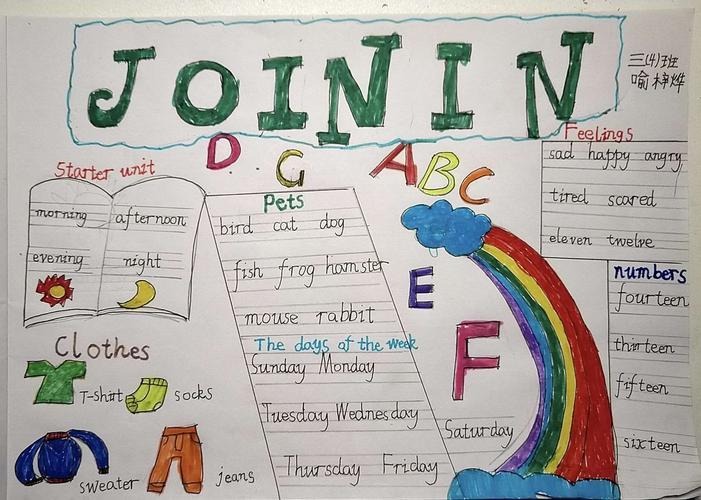 JOIN IN
三(4)班
喻梓烨
D. G ABC
Starter unit
morning afternoon
evening night
Clothes
T-shirt socks
sweater jeans
Pets
bird cat dog
fish frog hamster
mouse rabbit
The days of the week
Sunday Monday
Tuesday Wednesday
Thursday Friday
Saturday
E
F
Feelings
sad happy angry
tired scared
eleven twelve
numbers
fourteen
thirteen
fifteen
sixteen